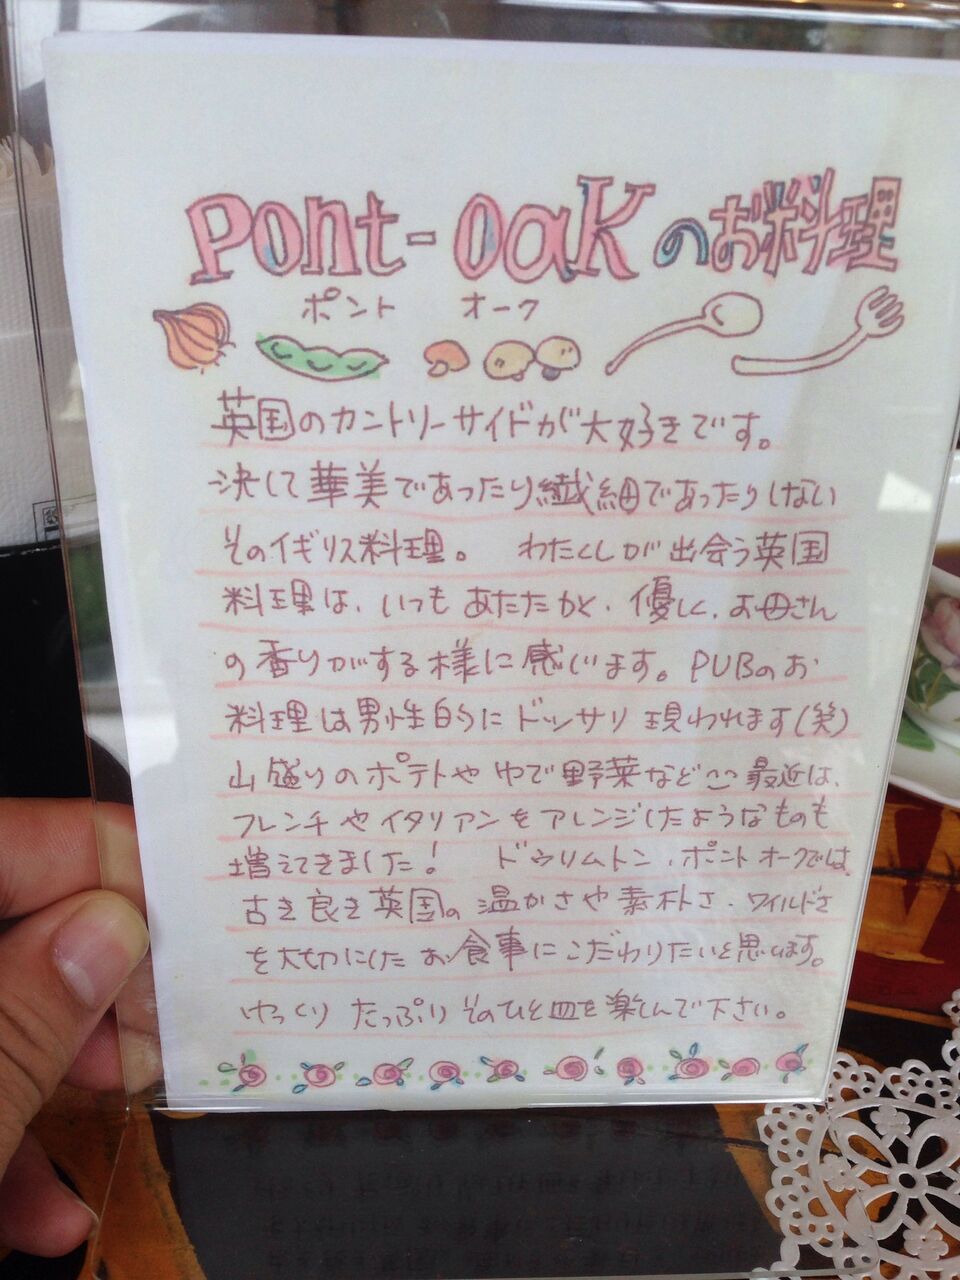 Pont-oakのお料理
ポント オーク
英国のカントリーサイドが大好きです。
決して華美であったり繊細であったりしない
そのイギリス料理。 わたくしが出会う英国
料理は、いつもあたたかく、優しく、お母さん
の香りがする様に感じます。PUBのお
料理は男性的にドッサリ現われます(笑)
山盛りのポテトやゆで野菜などここ最近は、
フレンチやイタリアンをアレンジしたようなものも
増えてきました! ドゥリムトン・ポントオークでは、
古き良き英国の温かさや素朴さ、ワイルドさ
を大切にしたお食事にこだわりたいと思います。
ゆっくり たっぷり そのひと皿を楽しんで下さい。